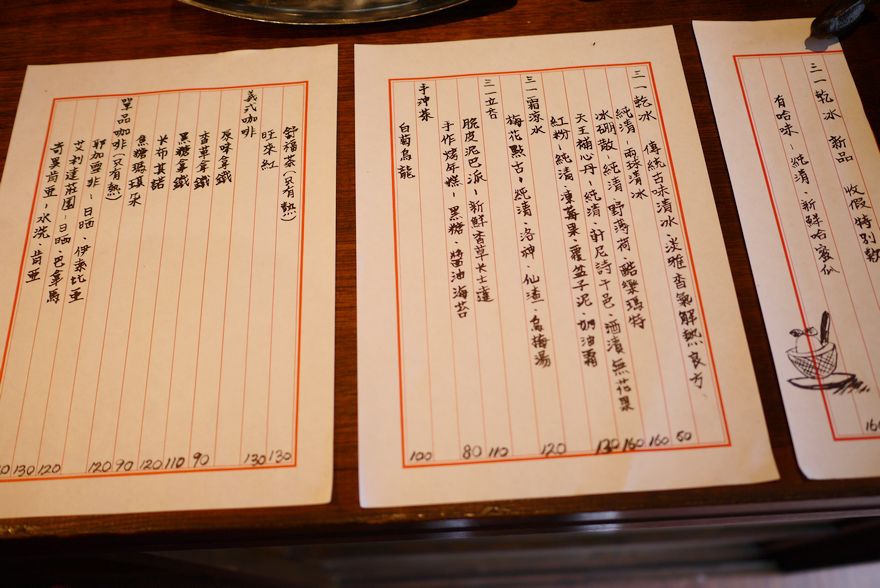 三一乾冰 新品 收假特別款
有哈味-純清、新鮮哈蜜瓜
三一乾冰 傳統古味清冰、淡雅香氣解熱良方
純清-兩球清冰 60
冰硼散-純清、野薄荷、酷樂瑪特 160
天王補心丹-純清、軒尼詩干邑、酒漬無花果 160
紅粉-純清、凍莓果、覆盆子泥、奶油霜 130
三一霜涼水
梅花點舌-純清、洛神、仙渣、烏梅湯 120
三一立吉
脆皮泥巴派-新鮮香草卡士達 110
手作烤年糕-黑糖、醬油海苔 80
手沖茶
白菊烏龍 100
舒福茶(只有熱) 130
旺來紅 130
義式咖啡
原味拿鐵 90
香草拿鐵 110
黑糖拿鐵 120
卡布其諾 90
焦糖瑪琪朵 120
單品咖啡(只有熱)
耶加雪非-日晒 伊索比亞 120
艾利達莊園-日晒、巴拿馬 130
奇異肯亞-水洗、肯亞